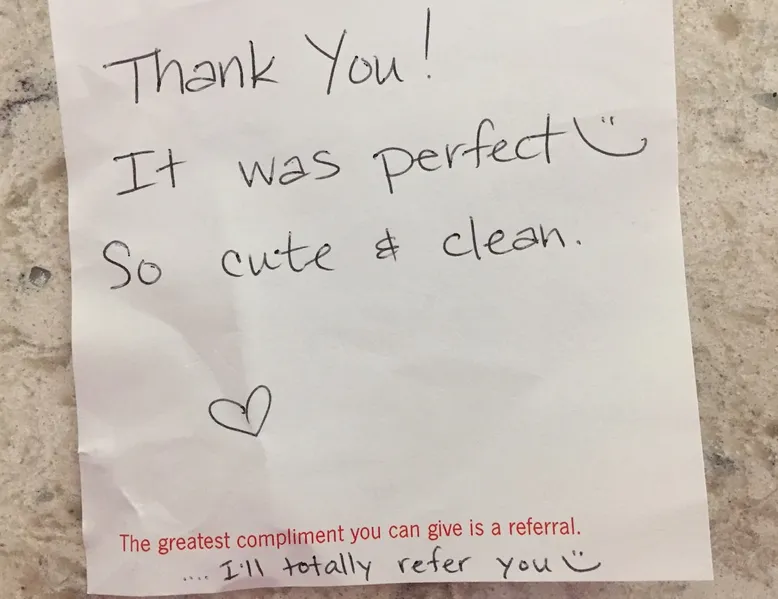 Thank You!
It was perfect
So cute & clean.
The greatest compliment you can give is a referral.
.... I'll totally refer you